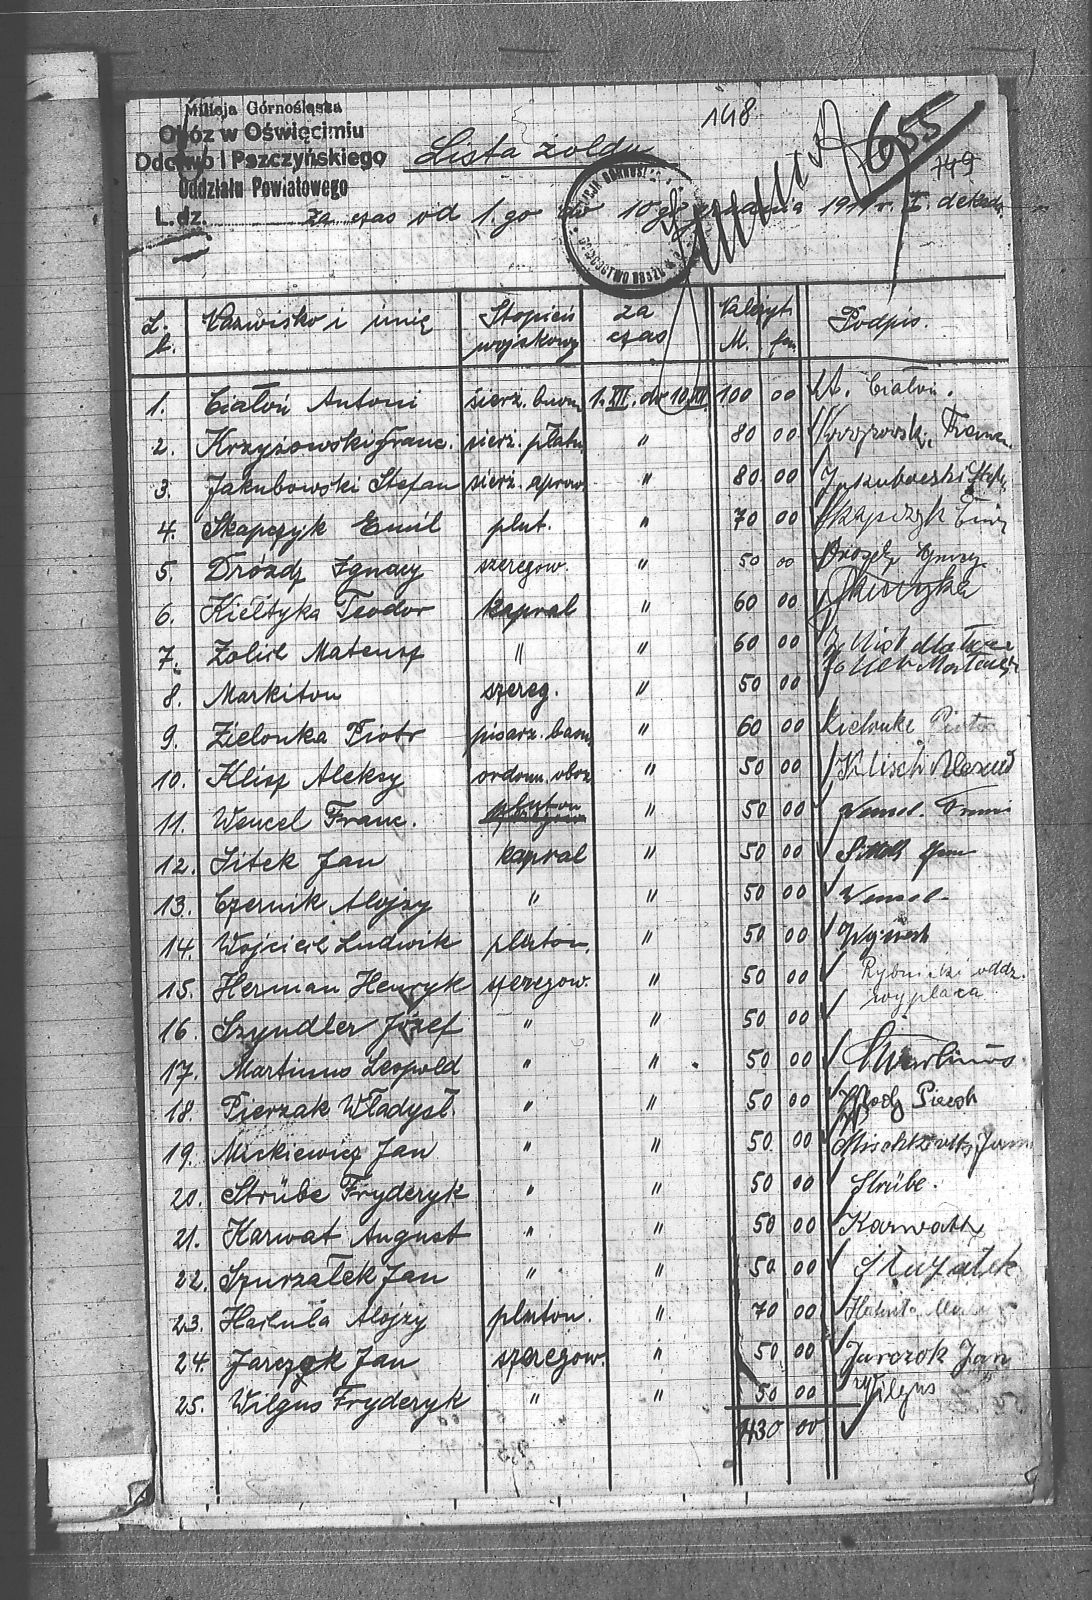 148
Milicja Górnośląska
Obóz w Oświęcimiu
Odcinek I Pszczyńskiego
Oddziału Powiatowego
L. dz.
Lista żołdu
655
149
za czas od 1. go do 10 go grudnia I. dekada
L. b. Nazwisko i imię Stopień wojskowy za czas Należyt. M. fen. Podpis.
1. Białoń Antoni sierż. 1. XII. do 10. XII. 100 00 A. Białoń.
2. Krzyżowski Franc. sierż. płatn. " 80 00
3. Jakubowski Stefan sierż. aprow. " 80 00 Jakubowski
4. Skapczyk Emil plut. " 70 00 Skapczyk Emil
5. Dróżdż Ignacy szeregow. " 50 00
6. Kiełtyka Teodor kapral " 60 00 Kiełtyka
7. Żolich Mateusz " " 60 00
8. Markiton szereg. " 50 00
9. Zielonka Piotr pisarz. " 60 00 Zielonka Piotr
10. Klisz Aleksy ordon. " 50 00 Klisch
11. Wencel Franc. pluton " 50 00
12. Sitek Jan kapral " 50 00
13. Czernik Alojzy " " 50 00
14. Wojciech Ludwik pluton. " 50 00
15. Herman Henryk szeregow. " 50 00 Rybnicki oddz.
wypłaca
16. Szyndler Józef " " 50 00
17. Martinus Leopold " " 50 00 Martinus
18. Pierzak Władysł. " " 50 00
19. Mickiewicz Jan " " 50 00
20. Strübe Fryderyk " " 50 00 Strübe.
21. Karwat August " " 50 00 Karwath
22. Szurzałek Jan " " 50 00
23. Hachuła Alojzy pluton. " 70 00
24. Jarczok Jan szeregow. " 50 00 Jarczok Jan
25. Wilgus Fryderyk " " 50 00 Wilgus
1430 00